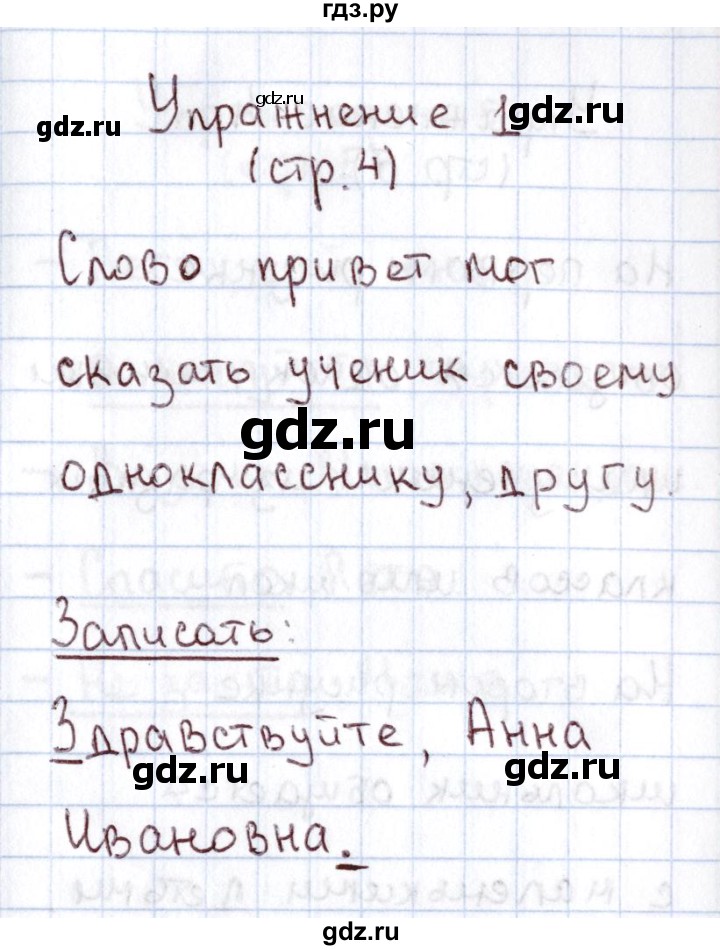 гдз.ру
gdz.ru
gdz.ru
gdz.ru
Упражнение 1
(стр.4)
Слово привет мог
сказать ученик своему
gdz.ru
однокласснику, другу.
Записать:
Здравствуйте, Анна
gdz.ru
gdz.ru
Ивановна.
gdz.ru
gdz.ru